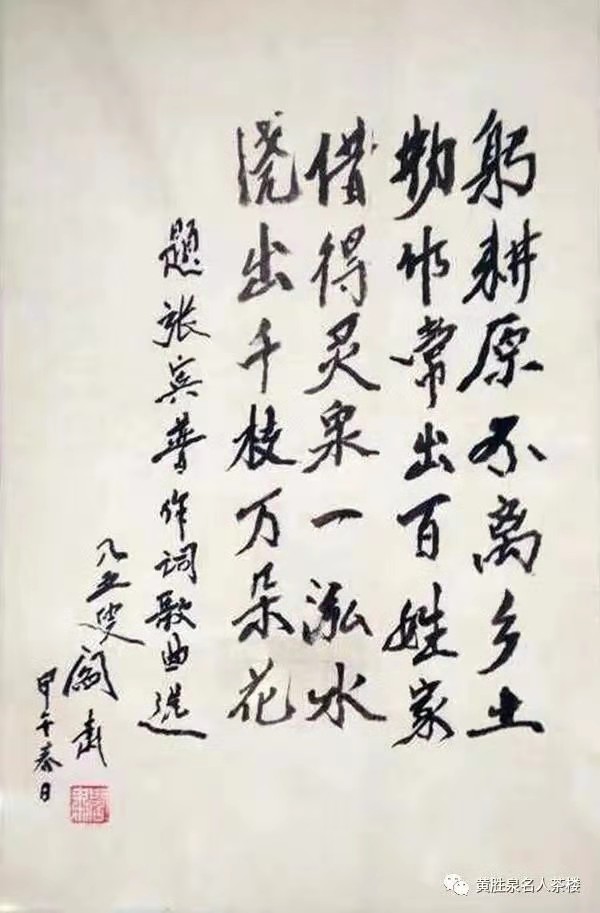 躬耕原不离乡土
作常出百姓家
借得灵泉一泓水
浇出千枝万朵花
题张宾普作词歌曲选
八五叟阎肃
甲午春日
黄胜泉名人茶楼